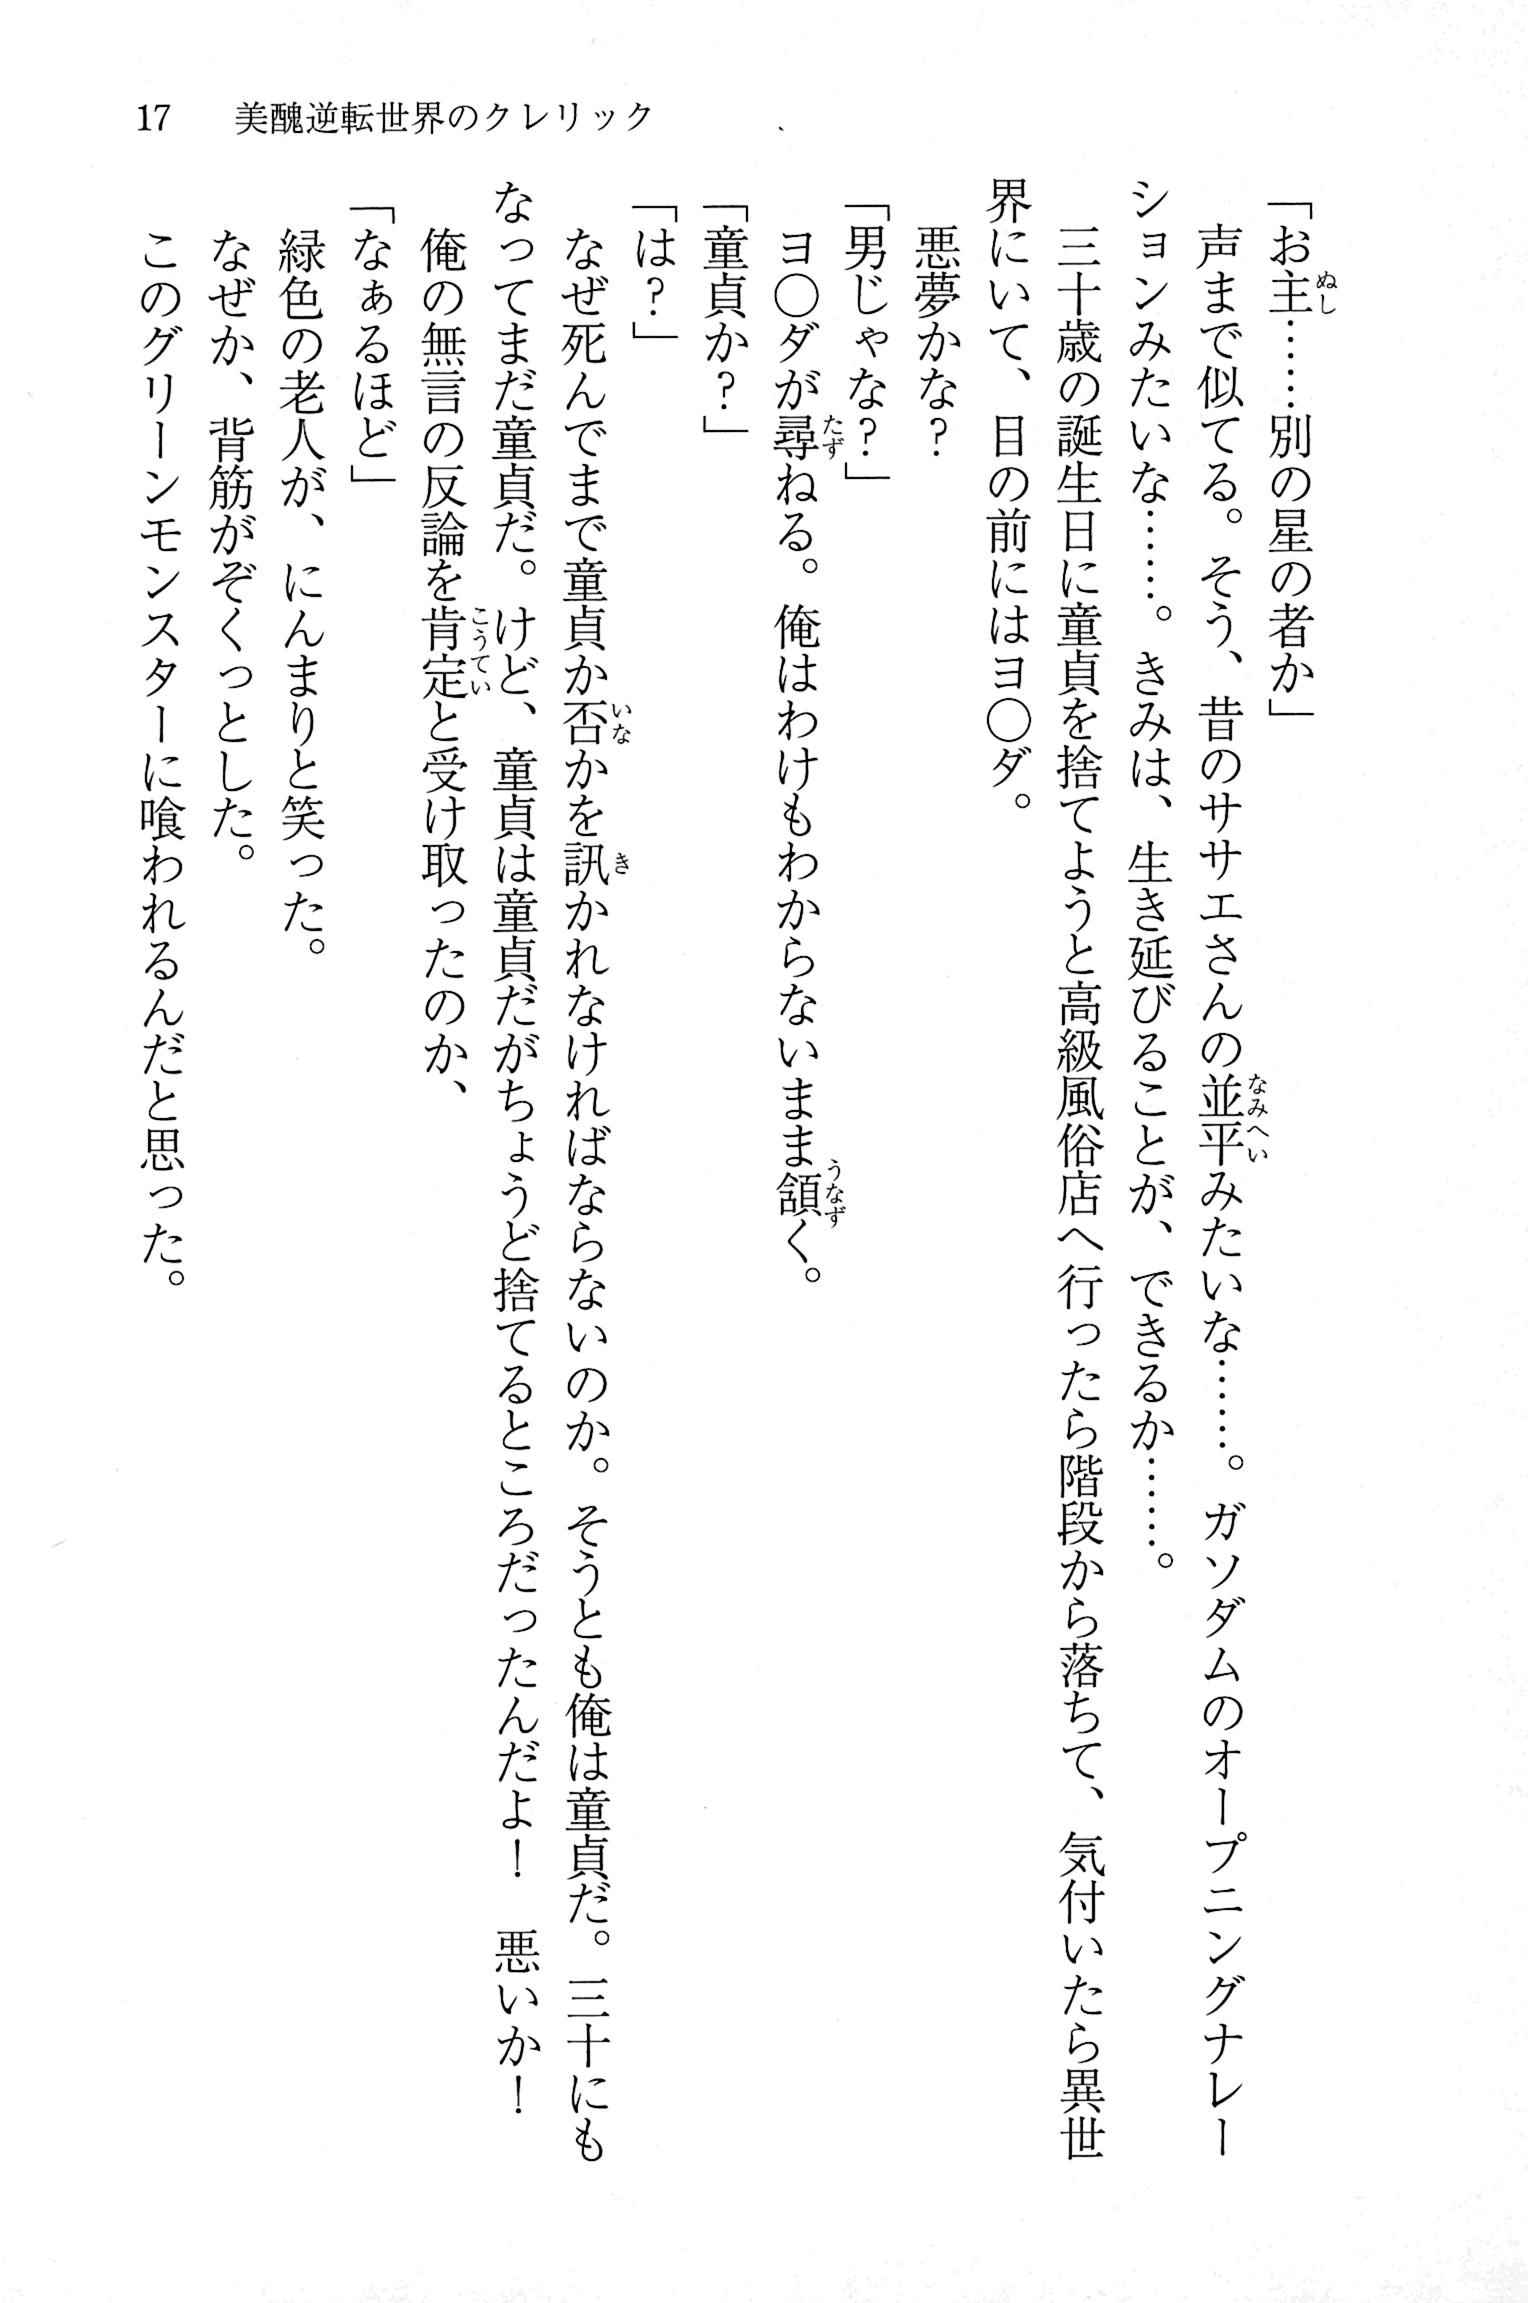 17　美醜逆転世界のクレリック
「お主……別の星の者か」
声まで似てる。そう、昔のササエさんの並平みたいな……。ガソダムのオープニングナレー
ションみたいな……。きみは、生き延びることが、できるか……。
三十歳の誕生日に童貞を捨てようと高級風俗店へ行ったら階段から落ちて、気付いたら異世
界にいて、目の前にはヨ〇ダ。
悪夢かな？
「男じゃな？」
ヨ〇ダが尋ねる。俺はわけもわからないまま頷く。
「童貞か？」
「は？」
なぜ死んでまで童貞か否かを訊かれなければならないのか。そうとも俺は童貞だ。三十にも
なってまだ童貞だ。けど、童貞は童貞だがちょうど捨てるところだったんだよ！　悪いか！
俺の無言の反論を肯定と受け取ったのか、
「なぁるほど」
緑色の老人が、にんまりと笑った。
なぜか、背筋がぞくっとした。
このグリーンモンスターに喰われるんだと思った。